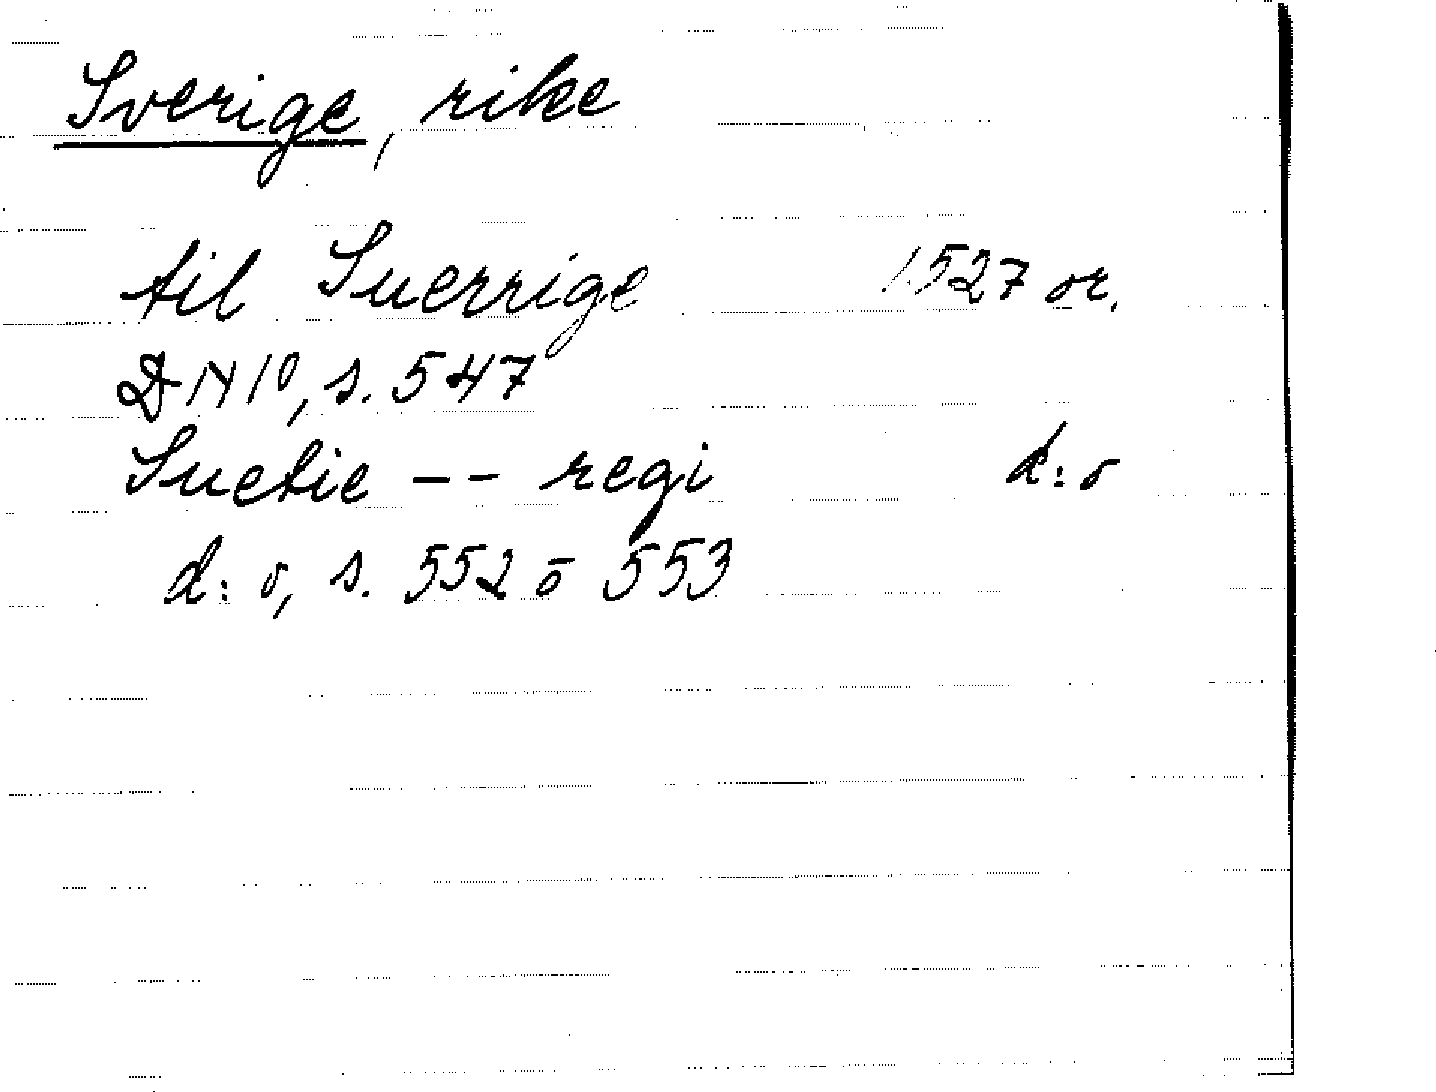 Sverige, rike
til Suerrige 1527 or.
DN 10, s. 547
Suetie -- regi d:o
d:o, s. 552 o 553